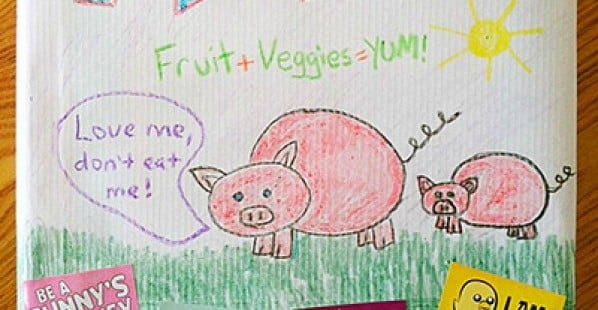 Fruit + Veggies = YUM!
Love me,
don't eat
me!
BE A
BUNNY'S
I AM